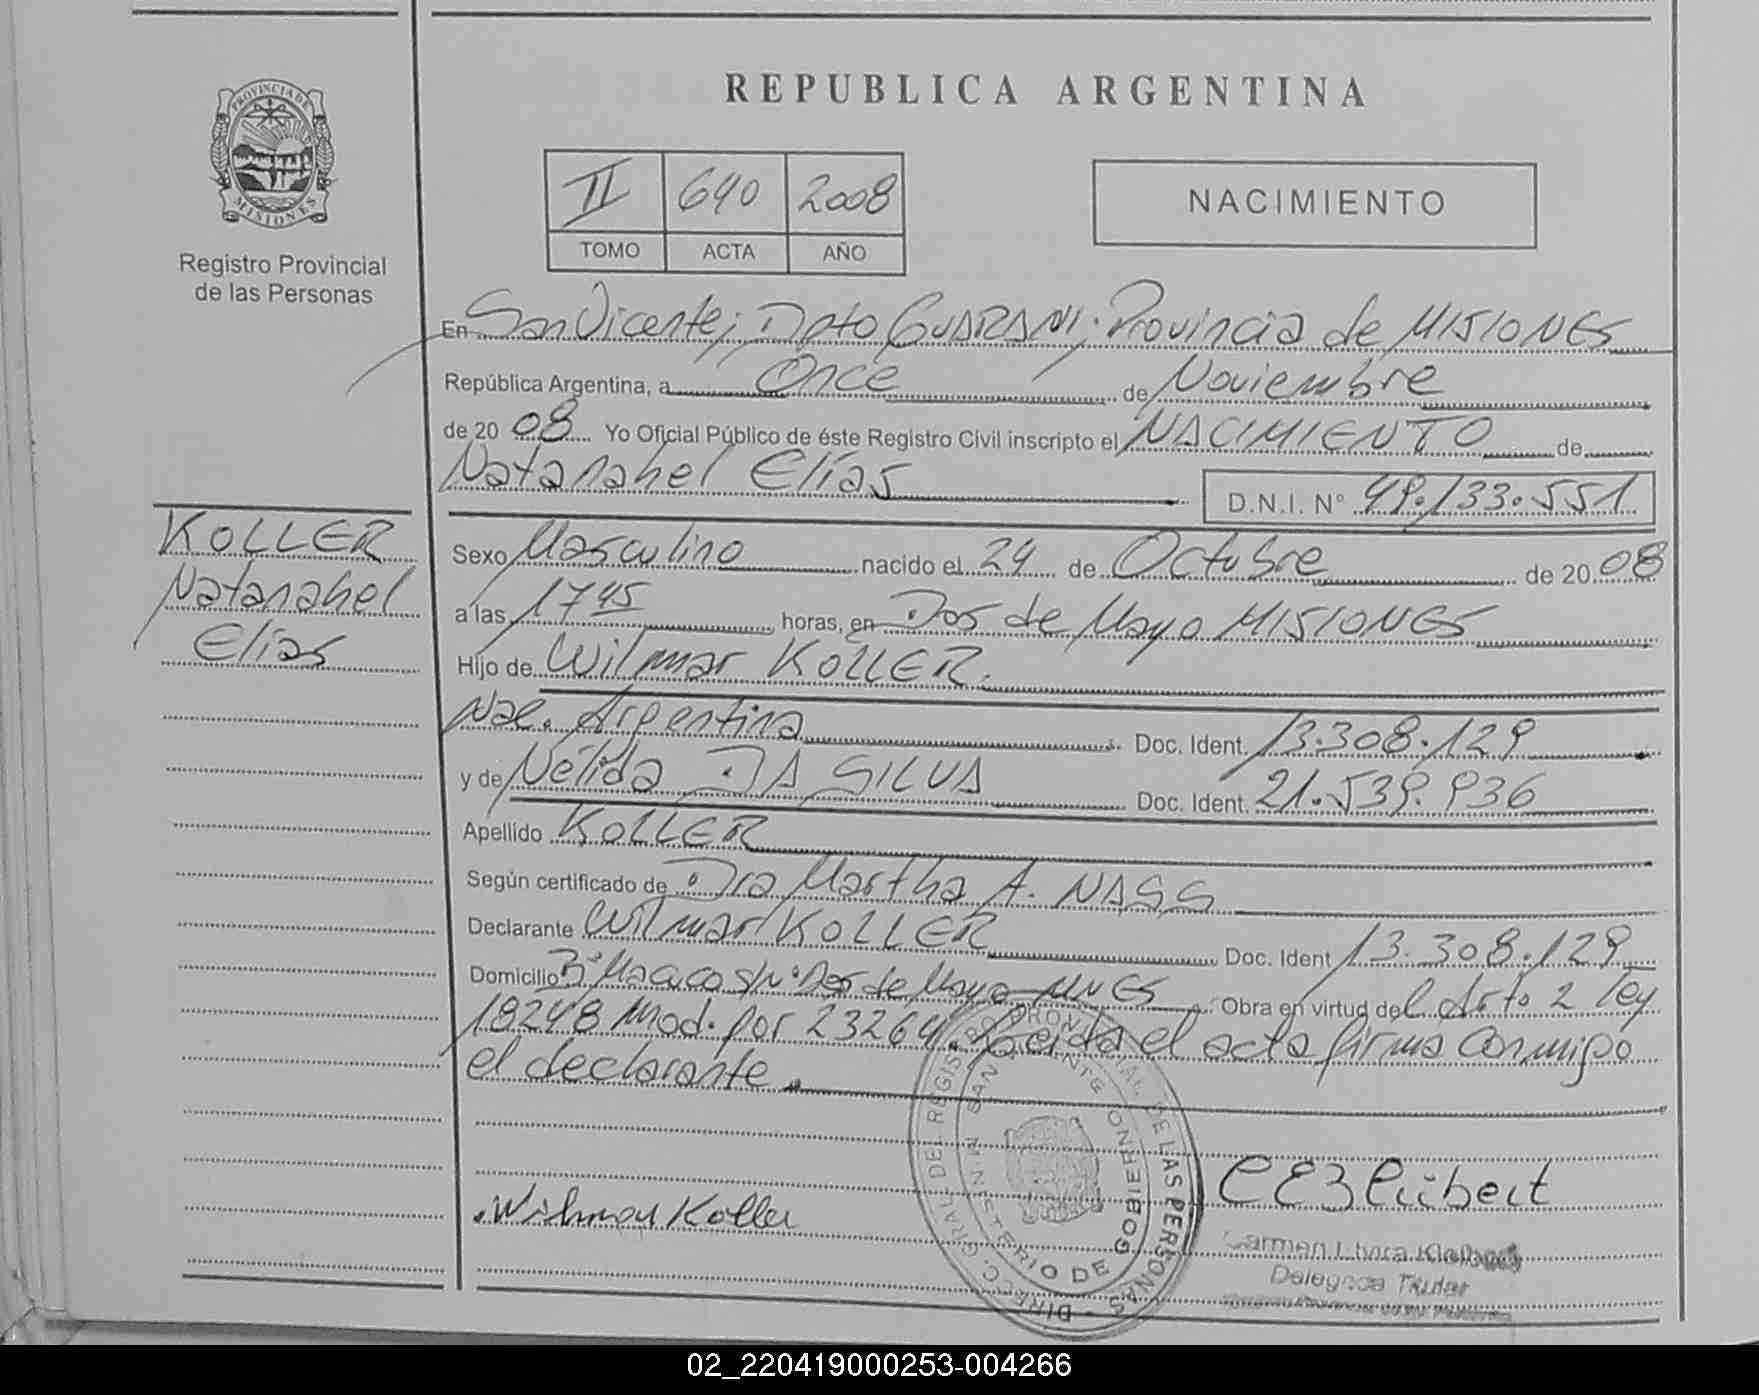 REPUBLICA ARGENTINA
PROVINCIA DE
MISIONES
Registro Provincial
de las Personas
II 640 2008
TOMO ACTA AÑO
NACIMIENTO
En San Vicente; Dpto GUARANI; Provincia de MISIONES
República Argentina, a Once de Noviembre
de 20 08 Yo Oficial Público de éste Registro Civil inscripto el NACIMIENTO de
Natanahel Elías D.N.I. Nº 49.133.551
KOLLER
Natanahel
Elías
Sexo Masculino nacido el 24 de Octubre de 20 08
a las 1745 horas, en Dos de Mayo MISIONES
Hijo de Wilmar KOLLER.
Nac. Argentina Doc. Ident. 13.308.129
y de Nélida DA SILVA Doc. Ident. 21.539.936
Apellido KOLLER
Según certificado de Dra Martha A. NASS
Declarante Wilmar KOLLER Doc. Ident 13.308.129
Domicilio Bº Macaco s/n Dos de Mayo MNES Obra en virtud del Arto 2 ley
18248 Mod. por 23264. el acta firma conmigo
el declarante
DIREC. GRAL DEL REGISTRO PROVINCIAL DE LAS PERSONAS
MINISTERIO DE GOBIERNO
SAN VICENTE
Wilmar Koller
Carmen
Delegada Titular
02_220419000253-004266